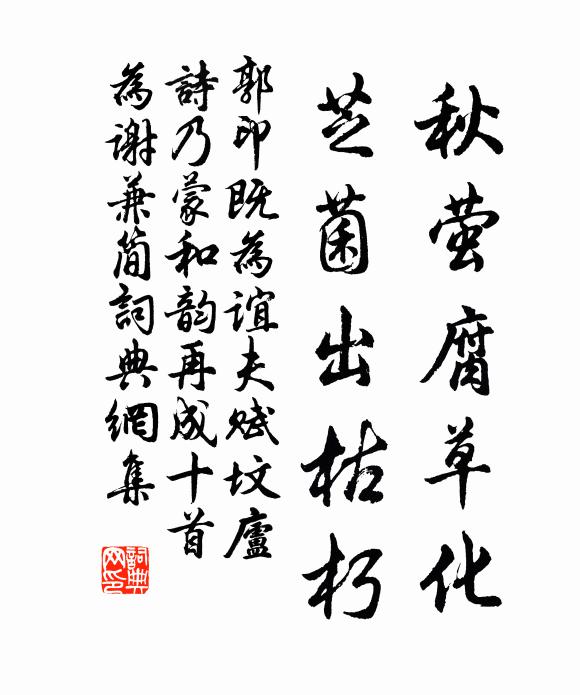 秋萤腐草化
芝菌出枯朽
郭印既為誼夫赋坟廬
詩乃蒙和韵再成十首
為谢兼简詞典網集
詞典网印